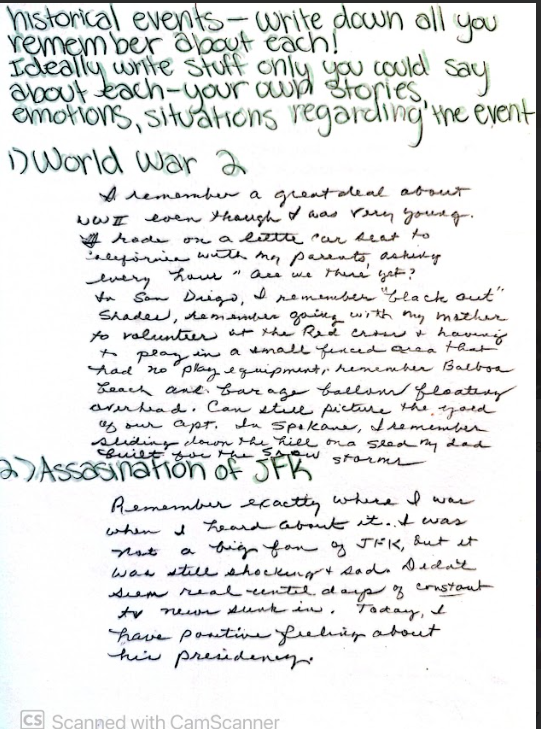 historical events - write down all you
remember about each!
Ideally write stuff only you could say
about each - your own stories,
emotions, situations regarding the event
1) World War 2
I remember a great deal about
WWII even though I was very young.
I rode on a little car seat to
California with my parents, asking
every hour "are we there yet?
In San Diego, I remember "black out"
shades, remember going with my mother
to volunteer at the Red Cross & having
to play in a small fenced area that
had no play equipment, remember Balboa
beach and barage balloons floating
overhead. Can still picture the yard
of our apt. In Spokane, I remember
sliding down the hill on a sled my dad
built for the snow storms
2) Assasination of JFK
Remember exactly where I was
when I heard about it. I was
not a big fan of JFK, but it
was still shocking & sad. Didn't
seem real until days of constant
tv news sunk in. Today, I
have positive feeling about
his presidency.
CS Scanned with CamScanner